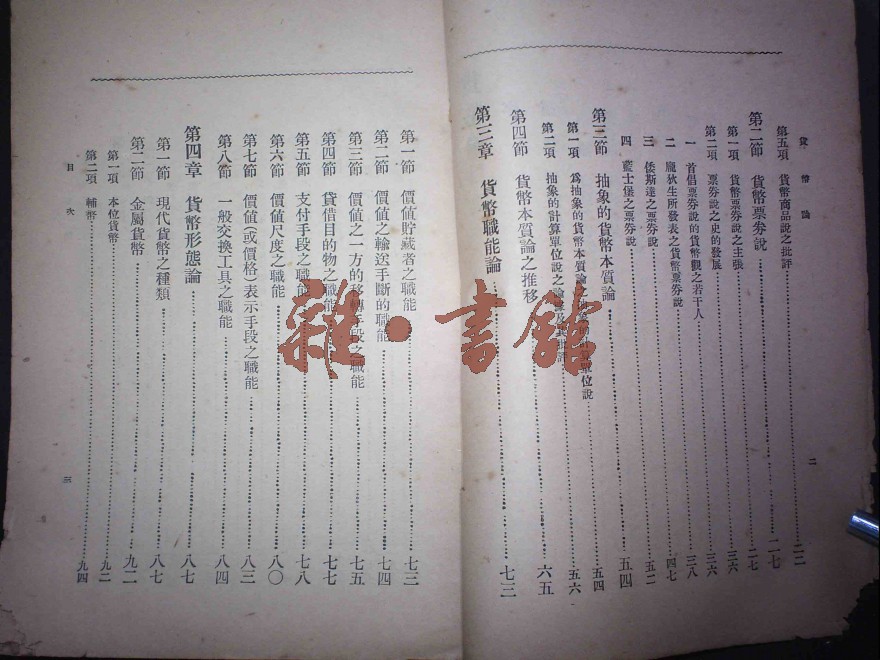 貨幣論
二
第五項 貨幣商品說之批評……二二
第二節 貨幣票券說……二七
第一項 貨幣票券說之主張……二七
第二項 票券說之史的發展……三六
一 首倡票券說的貨幣觀之若干人……三六
二 龐狄生所發表之貨幣票券說……三八
三 倭斯達之票券說……四七
四 藍士堡之票券說……五二
第三節 抽象的貨幣本質論……五四
第一項 爲抽象的貨幣本質論 計算單位說……五四
第二項 抽象的計算單位說之論 批評……五六
第四節 貨幣本質論之推移……六五
第三章 貨幣職能論……七三
第一節 價値貯藏者之職能……七三
第二節 價値之輸送手斷的職能……七四
第三節 價値之一方的移轉手段之職能……七五
第四節 貸借目的物之職能……七七
第五節 支付手段之職能……七八
第六節 價値尺度之職能……八〇
第七節 價値(或價格)表示手段之職能……八三
第八節 一般交換工具之職能……八四
第四章 貨幣形態論……八七
第一節 現代貨幣之種類……八七
第二節 金屬貨幣……九二
第一項 本位貨幣……九二
第二項 輔幣……九四
目次
三
雜·書館